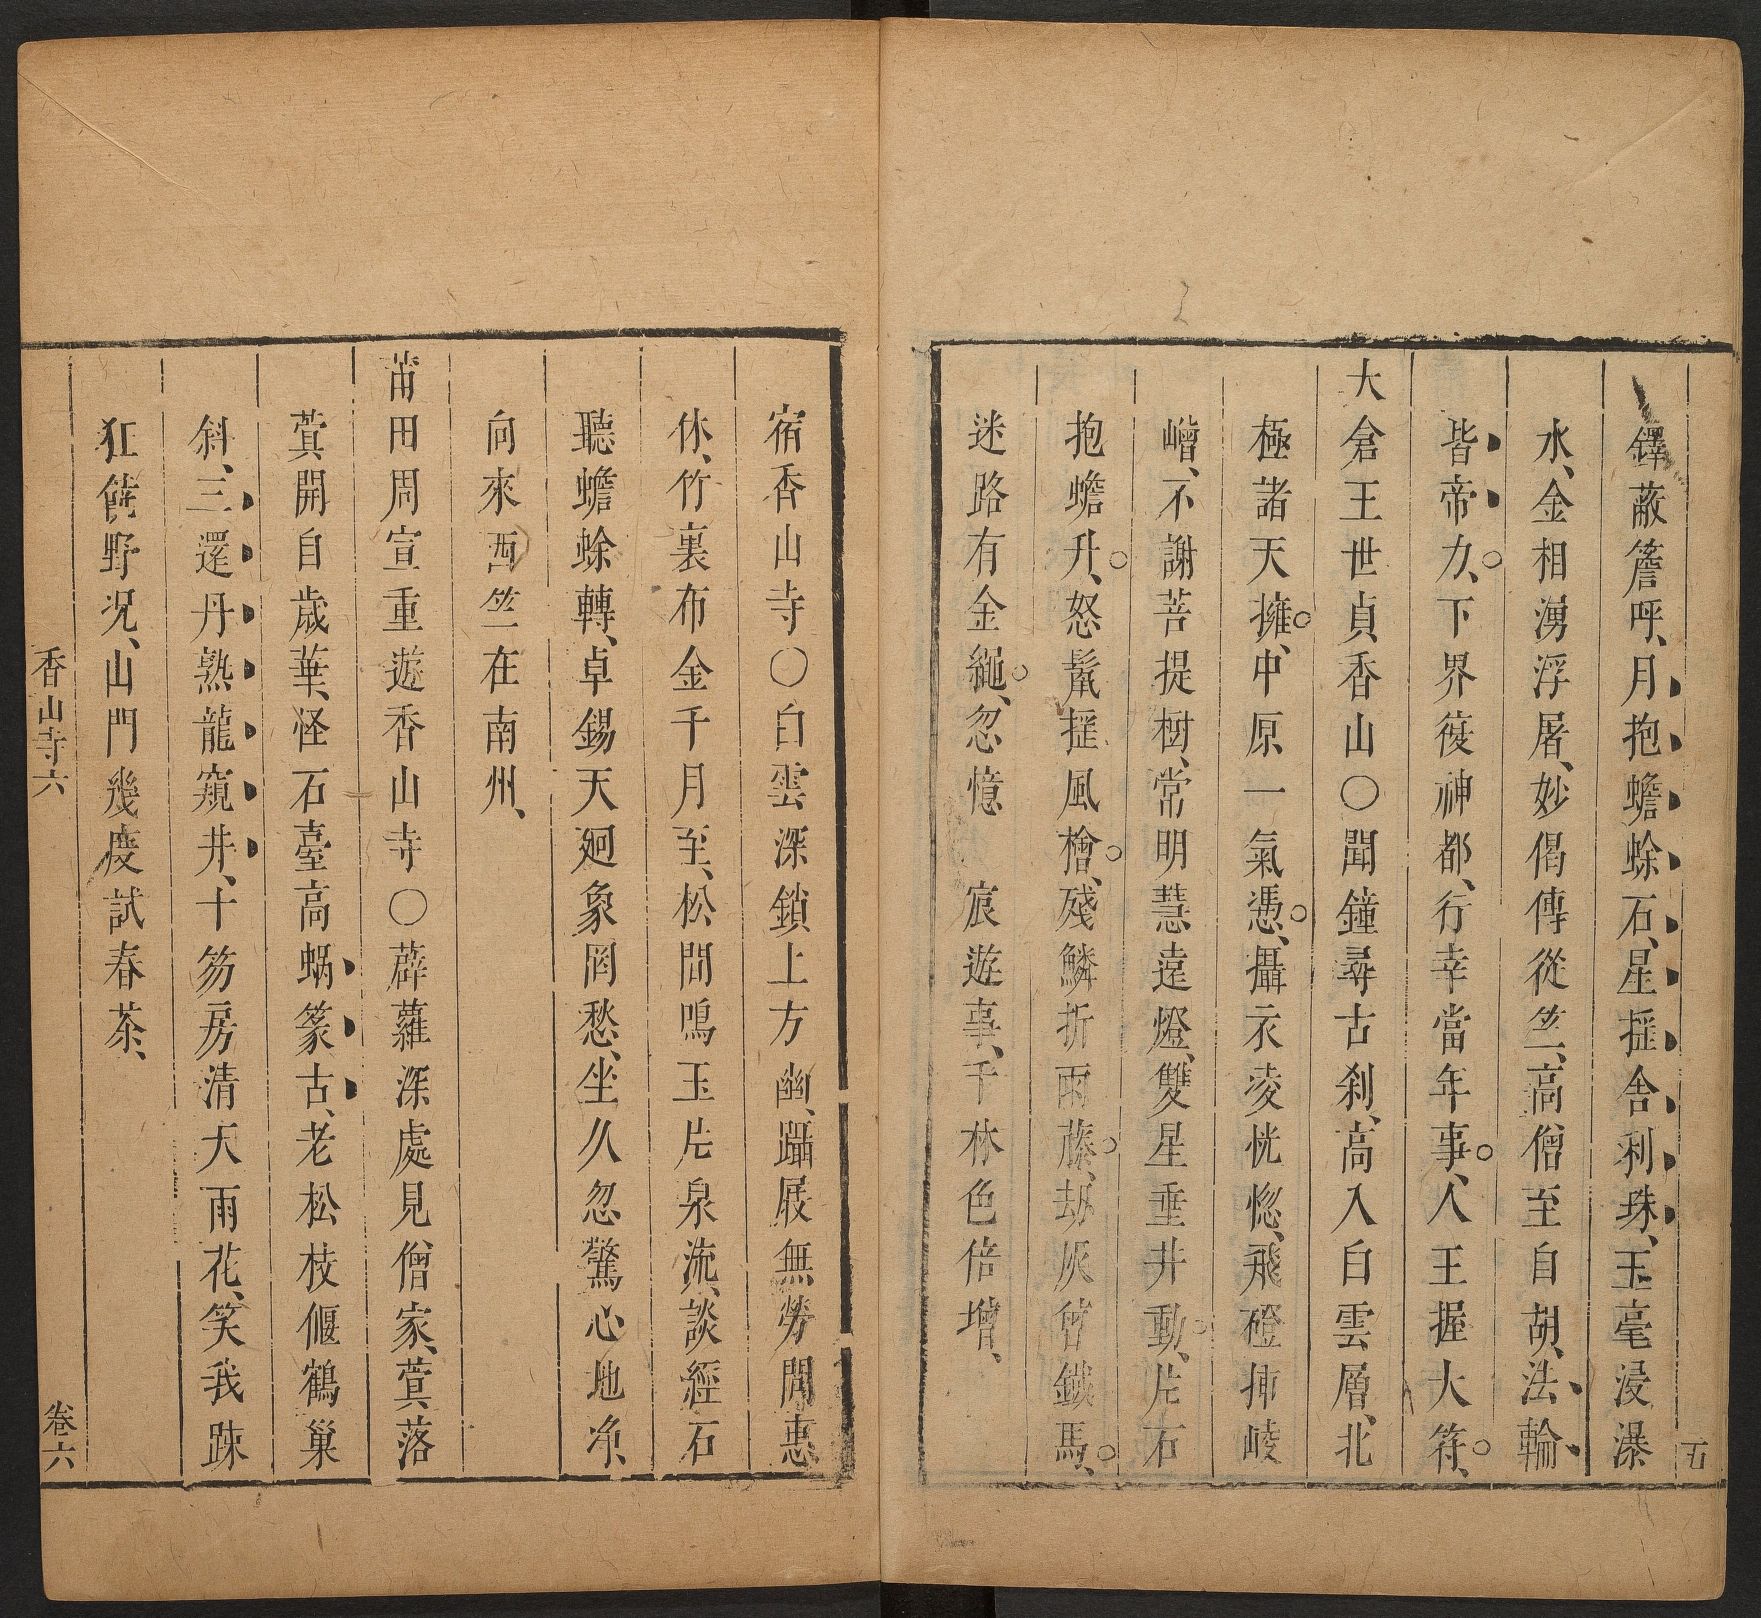 鐸蔽簷呼、月抱蟾蜍石、星摧舍利珠、玉毫浸瀑
水、金相湧浮屠、妙偈傳從竺、高僧至自胡、法輪
皆帝力、下界復神都、行幸當年事、人王握大符、
大倉王世貞、香山○聞鐘尋古刹、高入白雲層、北
極諸天擁、中原一氣憑、攝衣凌恍惚、飛磴挿崚
嶒、不謝菩提樹、常明慧遠燈、雙星垂井動、片石
抱蟾升、怒鬣摧風檜、殘鱗折雨藤、劫灰曾鐵馬、
迷路有金繩、忽憶　宸遊事、千林色倍增、
五
宿香山寺○白雲深鎖上方幽、躡屐無勞問惠
休、竹裏布金千月至、松間鳴玉片泉流、談經石
聽蟾蜍轉、卓錫天廻象罔愁、坐久忽驚心地净、
向來西竺在南州、
莆田周宣重遊香山寺○薜蘿深處見僧家、蓂落
蓂開自歲華、怪石臺高蝸篆古、老松枝偃鶴巢
斜、三還丹熟龍窺井、十笏房清天雨花、笑我踈
狂饒野况、山門幾度試春茶、
香山寺六
卷六